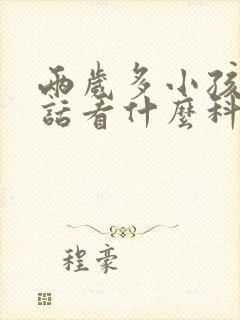 兩歲多小孩
話看什麼科
程豪